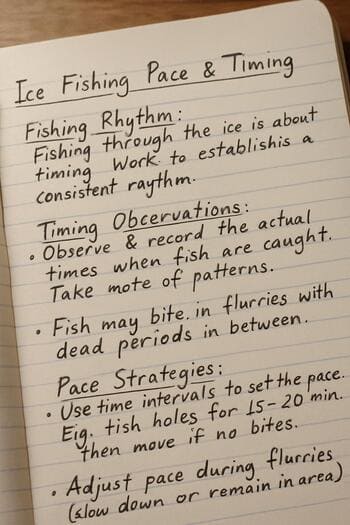 Ice Fishing Pace & Timing
Fishing Rhythm:
Fishing through the ice is about
timing Work to establishis a
consistent raythm.
Timing Obcervations:
• Observe & record the actual
times when fish are caught.
Take mote of patterns.
• Fish may bite. in flurries with
dead periods in between.
Pace Strategies:
• Use time intervals to set the pace.
Eig. tish holes for 15-20 min.
then move if no bites.
• Adjust pace during flurries
(slow down or remain in area)